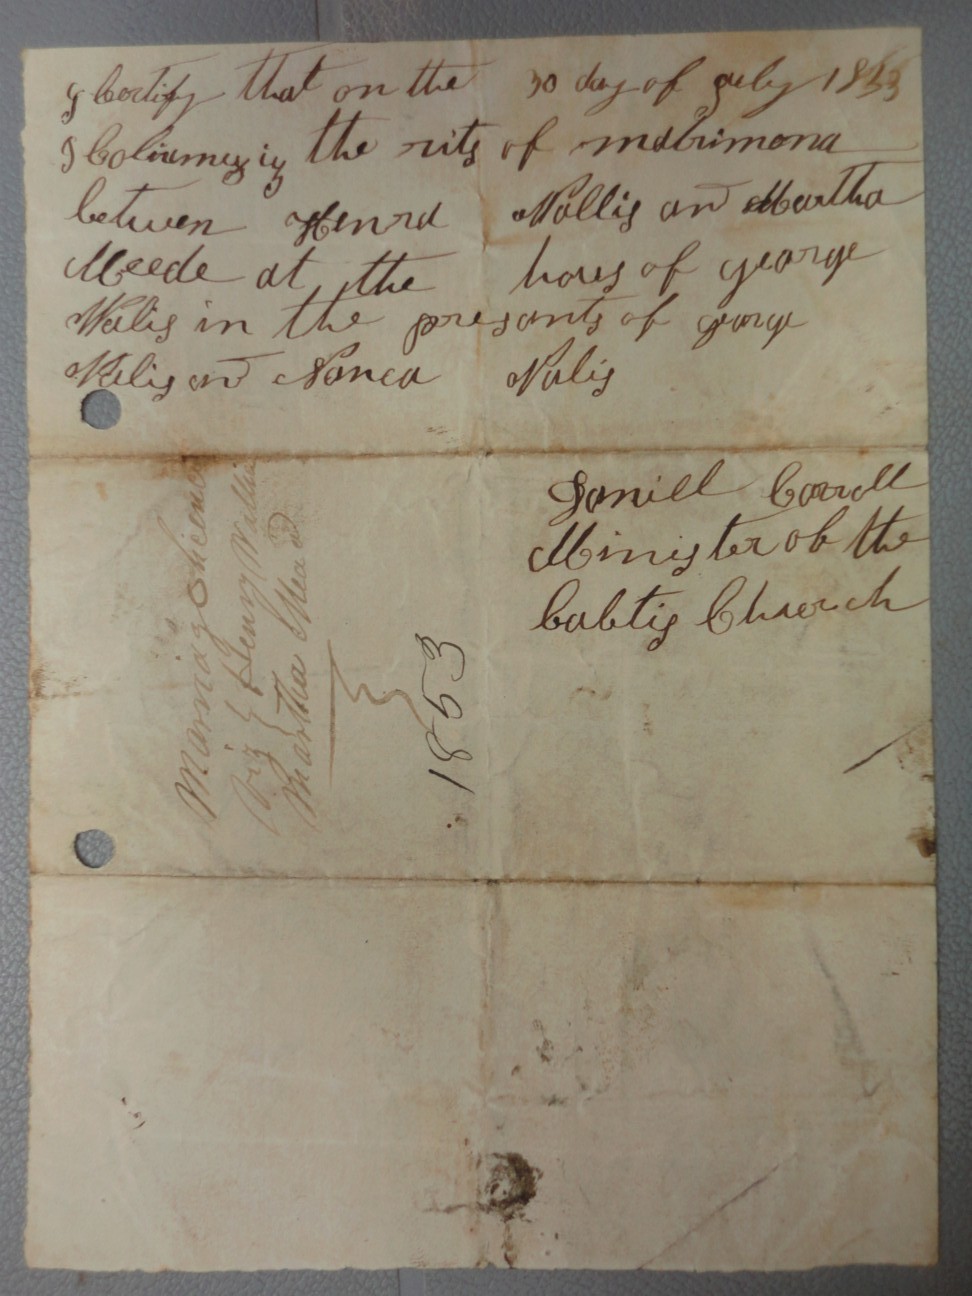 I Certify that on the 30 day of July 1853
I Coliamezig the rits of matrimona
betwen Henra Wallis and Martha
Meede at the hows of george
Walis in the presants of george
Walis and Nanca Walis
Daniell Carroll
Minister of the
babtis Church
Marriage
viz Henry Wallis
Martha Mead
1853